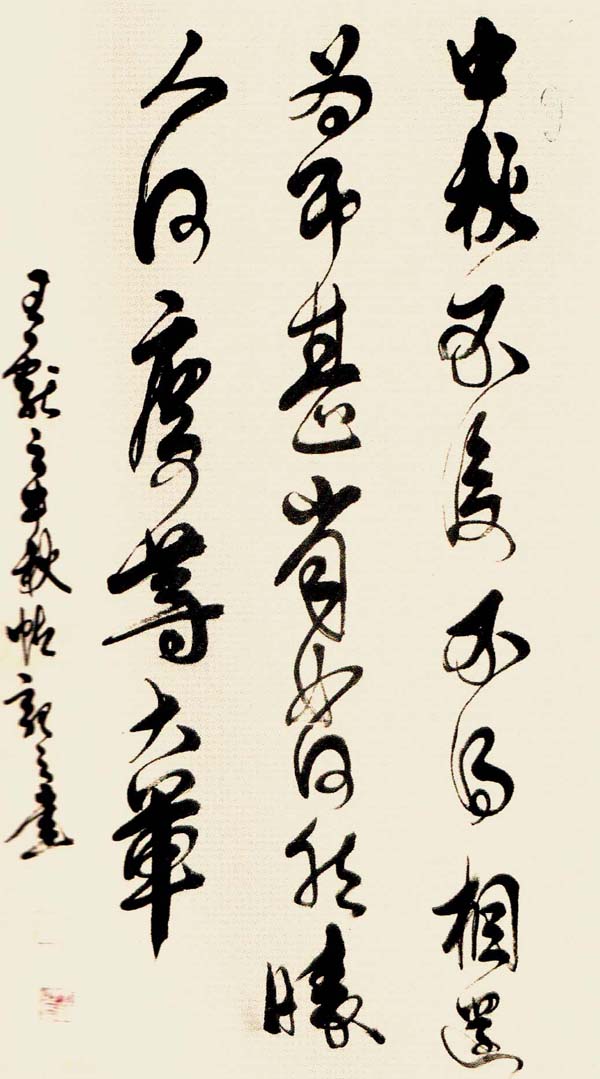 中秋不復不得相還
為即甚省如何然勝
人何慶等大軍
王獻之中秋帖